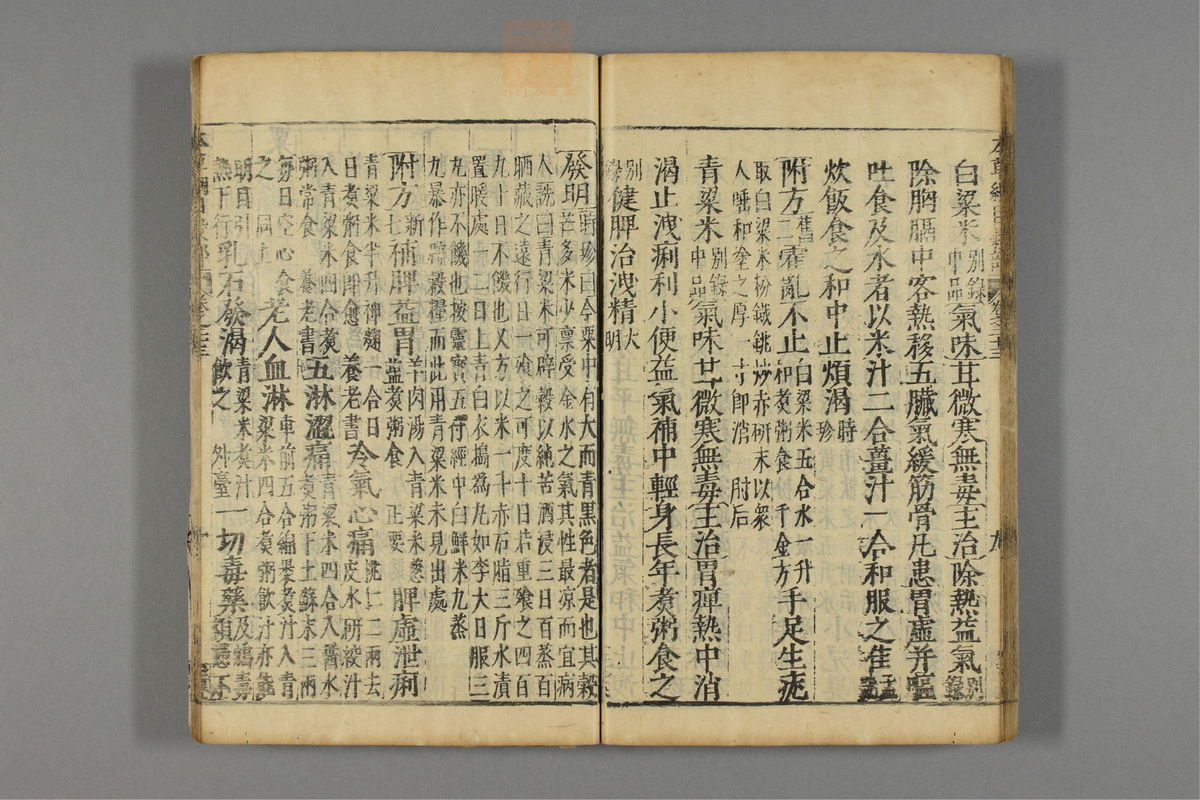 白粱米別錄中品氣味甘微寒無毒主治除熱益氣別錄
除胸膈中客熱移五臟氣緩筋骨凡患胃虛并嘔
吐食及水者以米汁二合薑汁一合和服之佳孟詵
炊飯食之和中止煩渴時珍
附方舊二霍亂不止白粱米五合水一升和煮粥食千金方手足生疣
取白粱米粉鐵銚炒赤研末以衆人唾和塗之厚一寸即消肘后
青粱米別錄中品氣味甘微寒無毒主治胃痺熱中消
渴止洩痢利小便益氣補中輕身長年煮粥食之
別錄健脾治洩精大明
發明時珍曰今粟中有大而青黑色者是也其穀
芒多米少稟受金水之氣其性最凉而宜病
人詵曰青粱米可辟穀以純苦酒浸三日百蒸百
晒藏之遠行日一飱之可度十日若重飱之四百
九十日不饑也又方以米一斗赤石脂三斤水漬
置暖處一二日上青白衣搗爲丸如李大日服三
丸亦不饑也按靈寶五符經中白鮮米九蒸
九暴作辟穀糧而此用青粱米未見出處
附方新七補脾益胃羊肉湯入青粱米葱鹽煮粥食正要脾虛泄痢
青粱米半升神麯一合日日煮粥食即愈養老書冷氣心痛桃仁二兩去皮水研絞汁
入青粱米四合煮粥常食養老書五淋澀痛青粱米四合入醬水煮粥下土蘇末三兩
每日空心食之同上老人血淋車前五合綿裹煮汁入青粱米四合煮粥飲汁亦能
明目引熱下行乳石發渴青粱米煮汁飲之外臺一切毒藥及鴆毒煩懣不